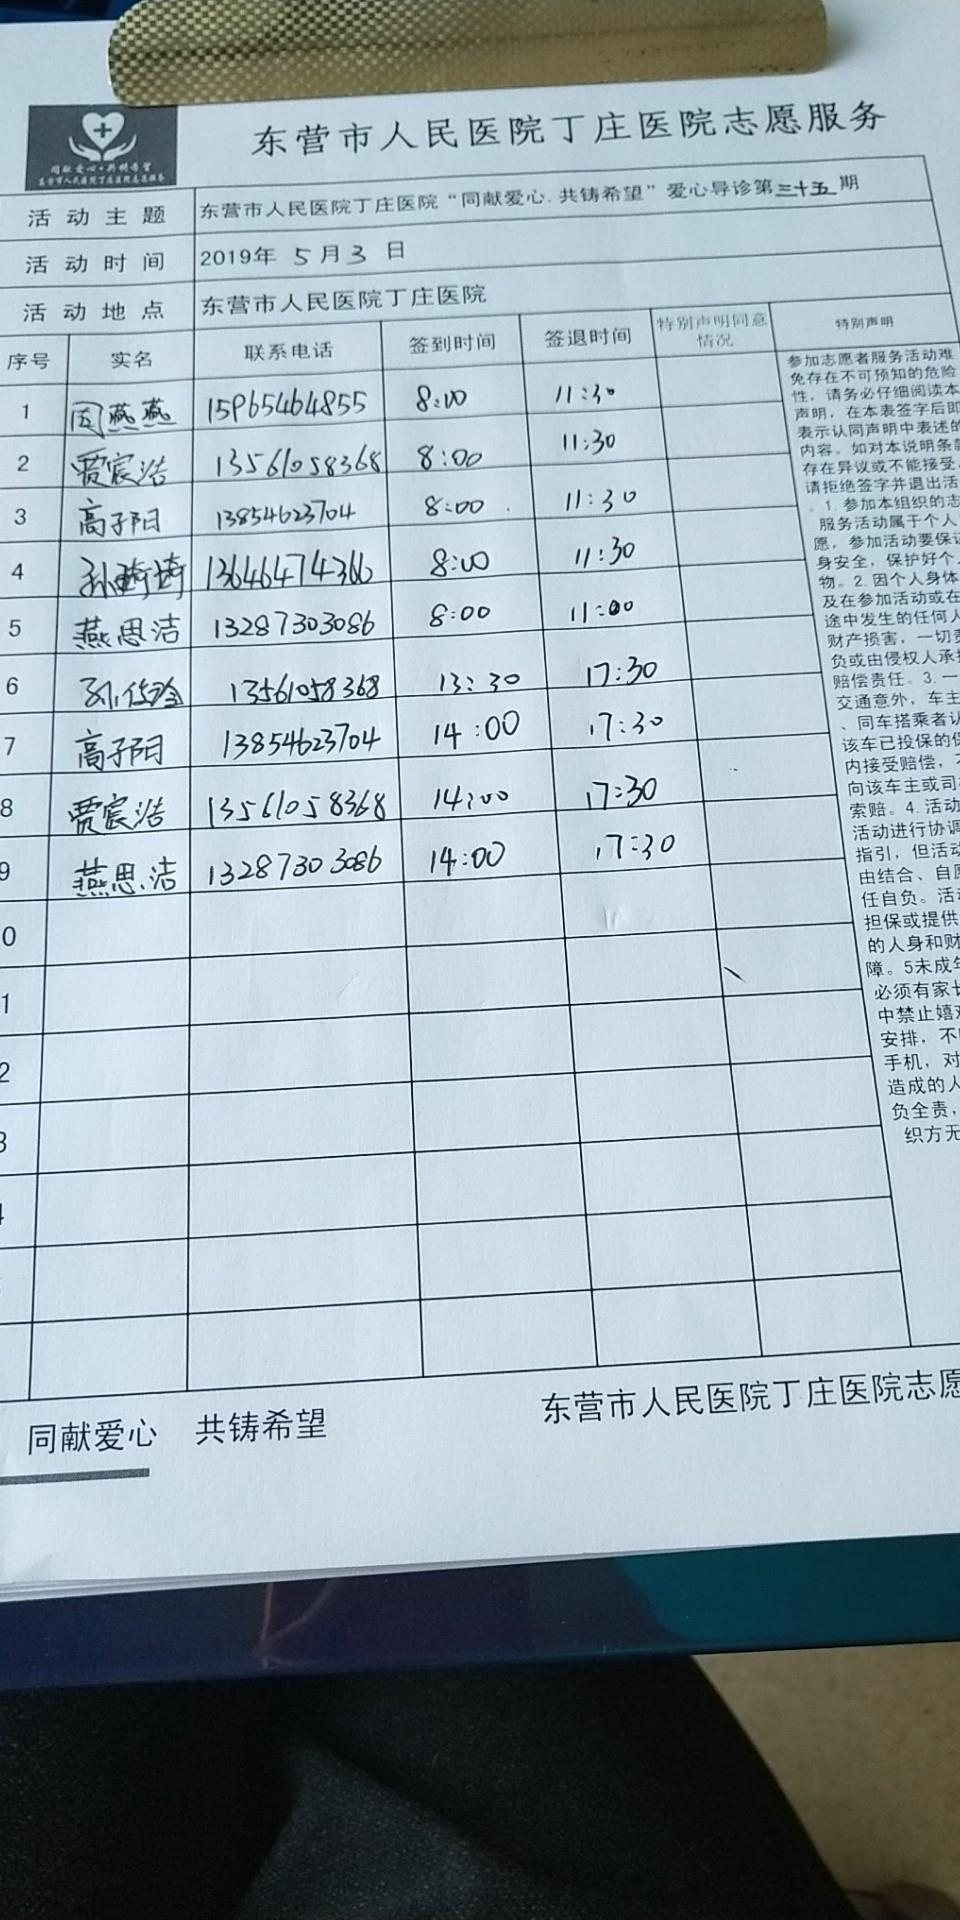 同献爱心·共铸希望
东营市人民医院丁庄医院志愿服务
东营市人民医院丁庄医院志愿服务
活动主题 东营市人民医院丁庄医院“同献爱心.共铸希望”爱心导诊第三十五期
活动时间 2019年 5 月 3 日
活动地点 东营市人民医院丁庄医院
序号 实名 联系电话 签到时间 签退时间 特别声明同意情况 特别声明
1 周燕燕 15965464855 8:00 11:30
2 贾宸浩 13561058368 8:00 11:30
3 高子阳 13854623704 8:00 11:30
4 孙琦琦 13646474366 8:00 11:30
5 燕思洁 13287303086 8:00 11:00
6 孙 13561058368 13:30 17:30
7 高子阳 13854623704 14:00 17:30
8 贾宸浩 13561058368 14:00 17:30
9 燕思洁 13287303086 14:00 17:30
0
1
2
3
4
参加志愿者服务活动难
免存在不可预知的危险
性，请务必仔细阅读本
声明，在本表签字后即
表示认同声明中表述的
内容。如对本说明条款
存在异议或不能接受，
请拒绝签字并退出活
。1.参加本组织的志
服务活动属于个人
愿，参加活动要保证
身安全，保护好个
物。2.因个人身体
及在参加活动或在
途中发生的任何人
财产损害，一切责
负或由侵权人承担
赔偿责任。3.一
交通意外，车主
、同车搭乘者认
该车已投保的保
内接受赔偿，不
向该车主或司
索赔。4.活动
活动进行协调
指引，但活动
由结合、自愿
任自负。活动
担保或提供
的人身和财
障。5未成年
必须有家长
中禁止嬉戏
安排，不
手机，对
造成的人
负全责，
织方无
同献爱心 共铸希望
东营市人民医院丁庄医院志愿